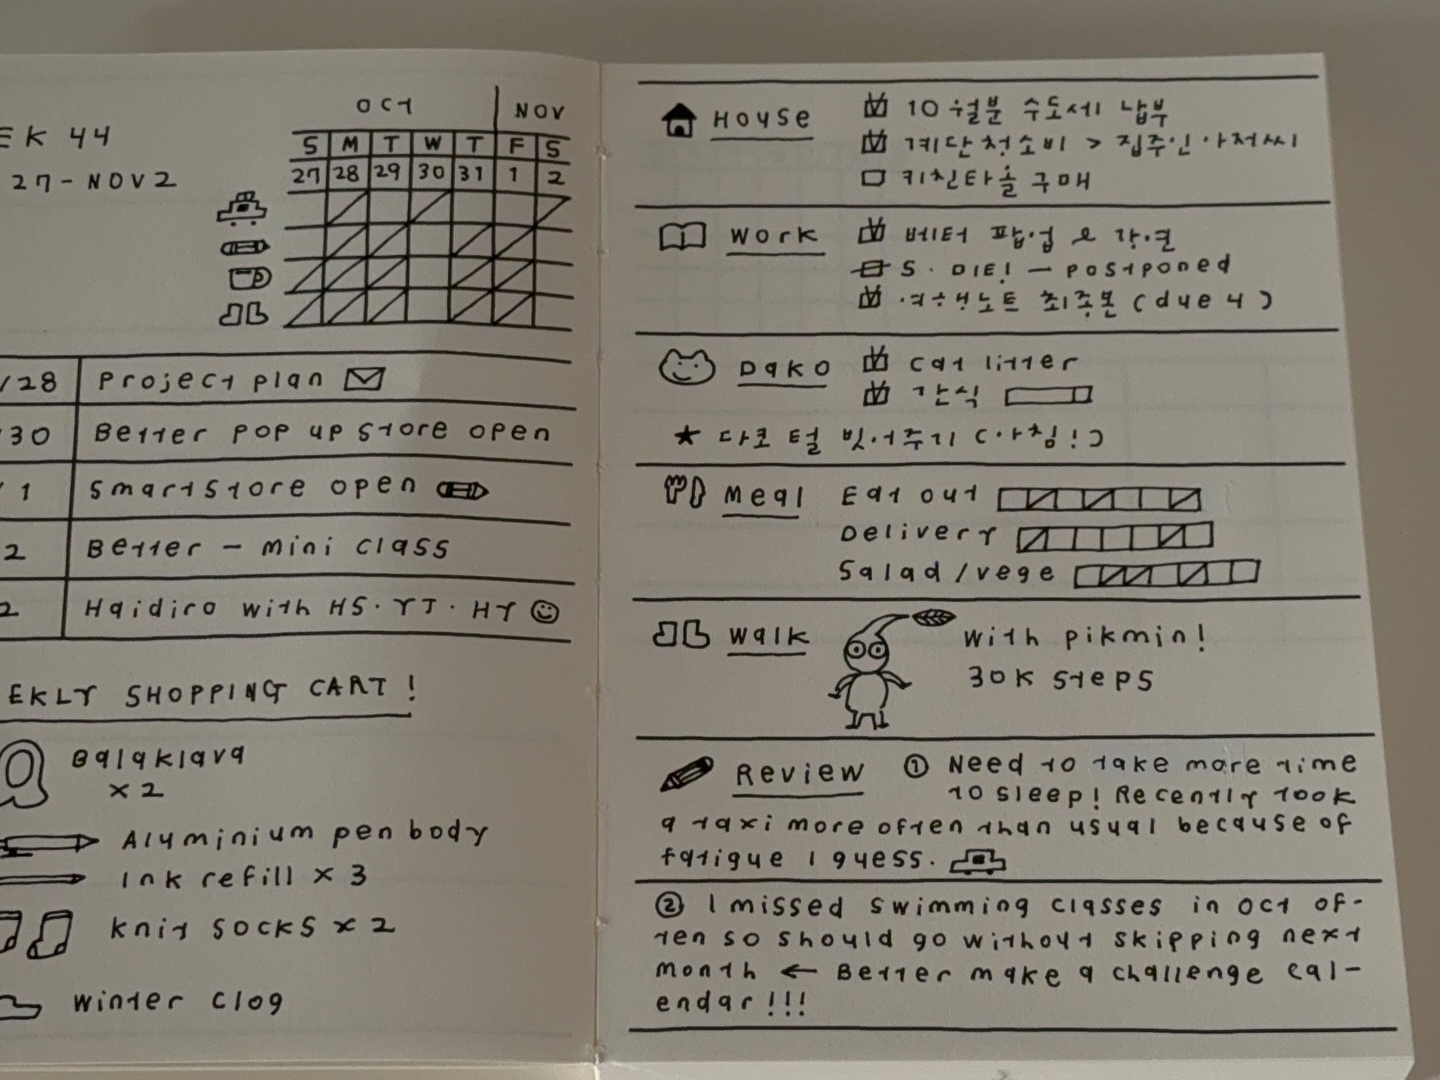 EK 44
27-NOV2
OCT NOV
S M T W T F S
27 28 29 30 31 1 2
/28 Project plan
30 Better pop up store open
/ 1 Smartstore open
2 Better - mini class
2 Haidiro with HS·YJ·HY
EKLY SHOPPING CART!
Balaklava
x 2
Aluminium pen body
Ink refill x 3
knit socks x 2
winter clog
House
10월분 수도세 납부
계단청소비 > 집주인아저씨
키친타올 구매
Work
베터 팝업
S. 미팅 - postponed
여행노트 최종본 (due 4)
Dako
cat litter
간식
★ 다코 털 빗어주기 (아침!)
Meal
Eat out
Delivery
Salad/vege
Walk
with pikmin!
30K steps
Review
① Need to take more time
to sleep! Recently took
a taxi more often than usual because of
fatigue I guess.
② I missed swimming classes in oct of-
ten so should go without skipping next
month ← Better make a challenge cal-
endar!!!